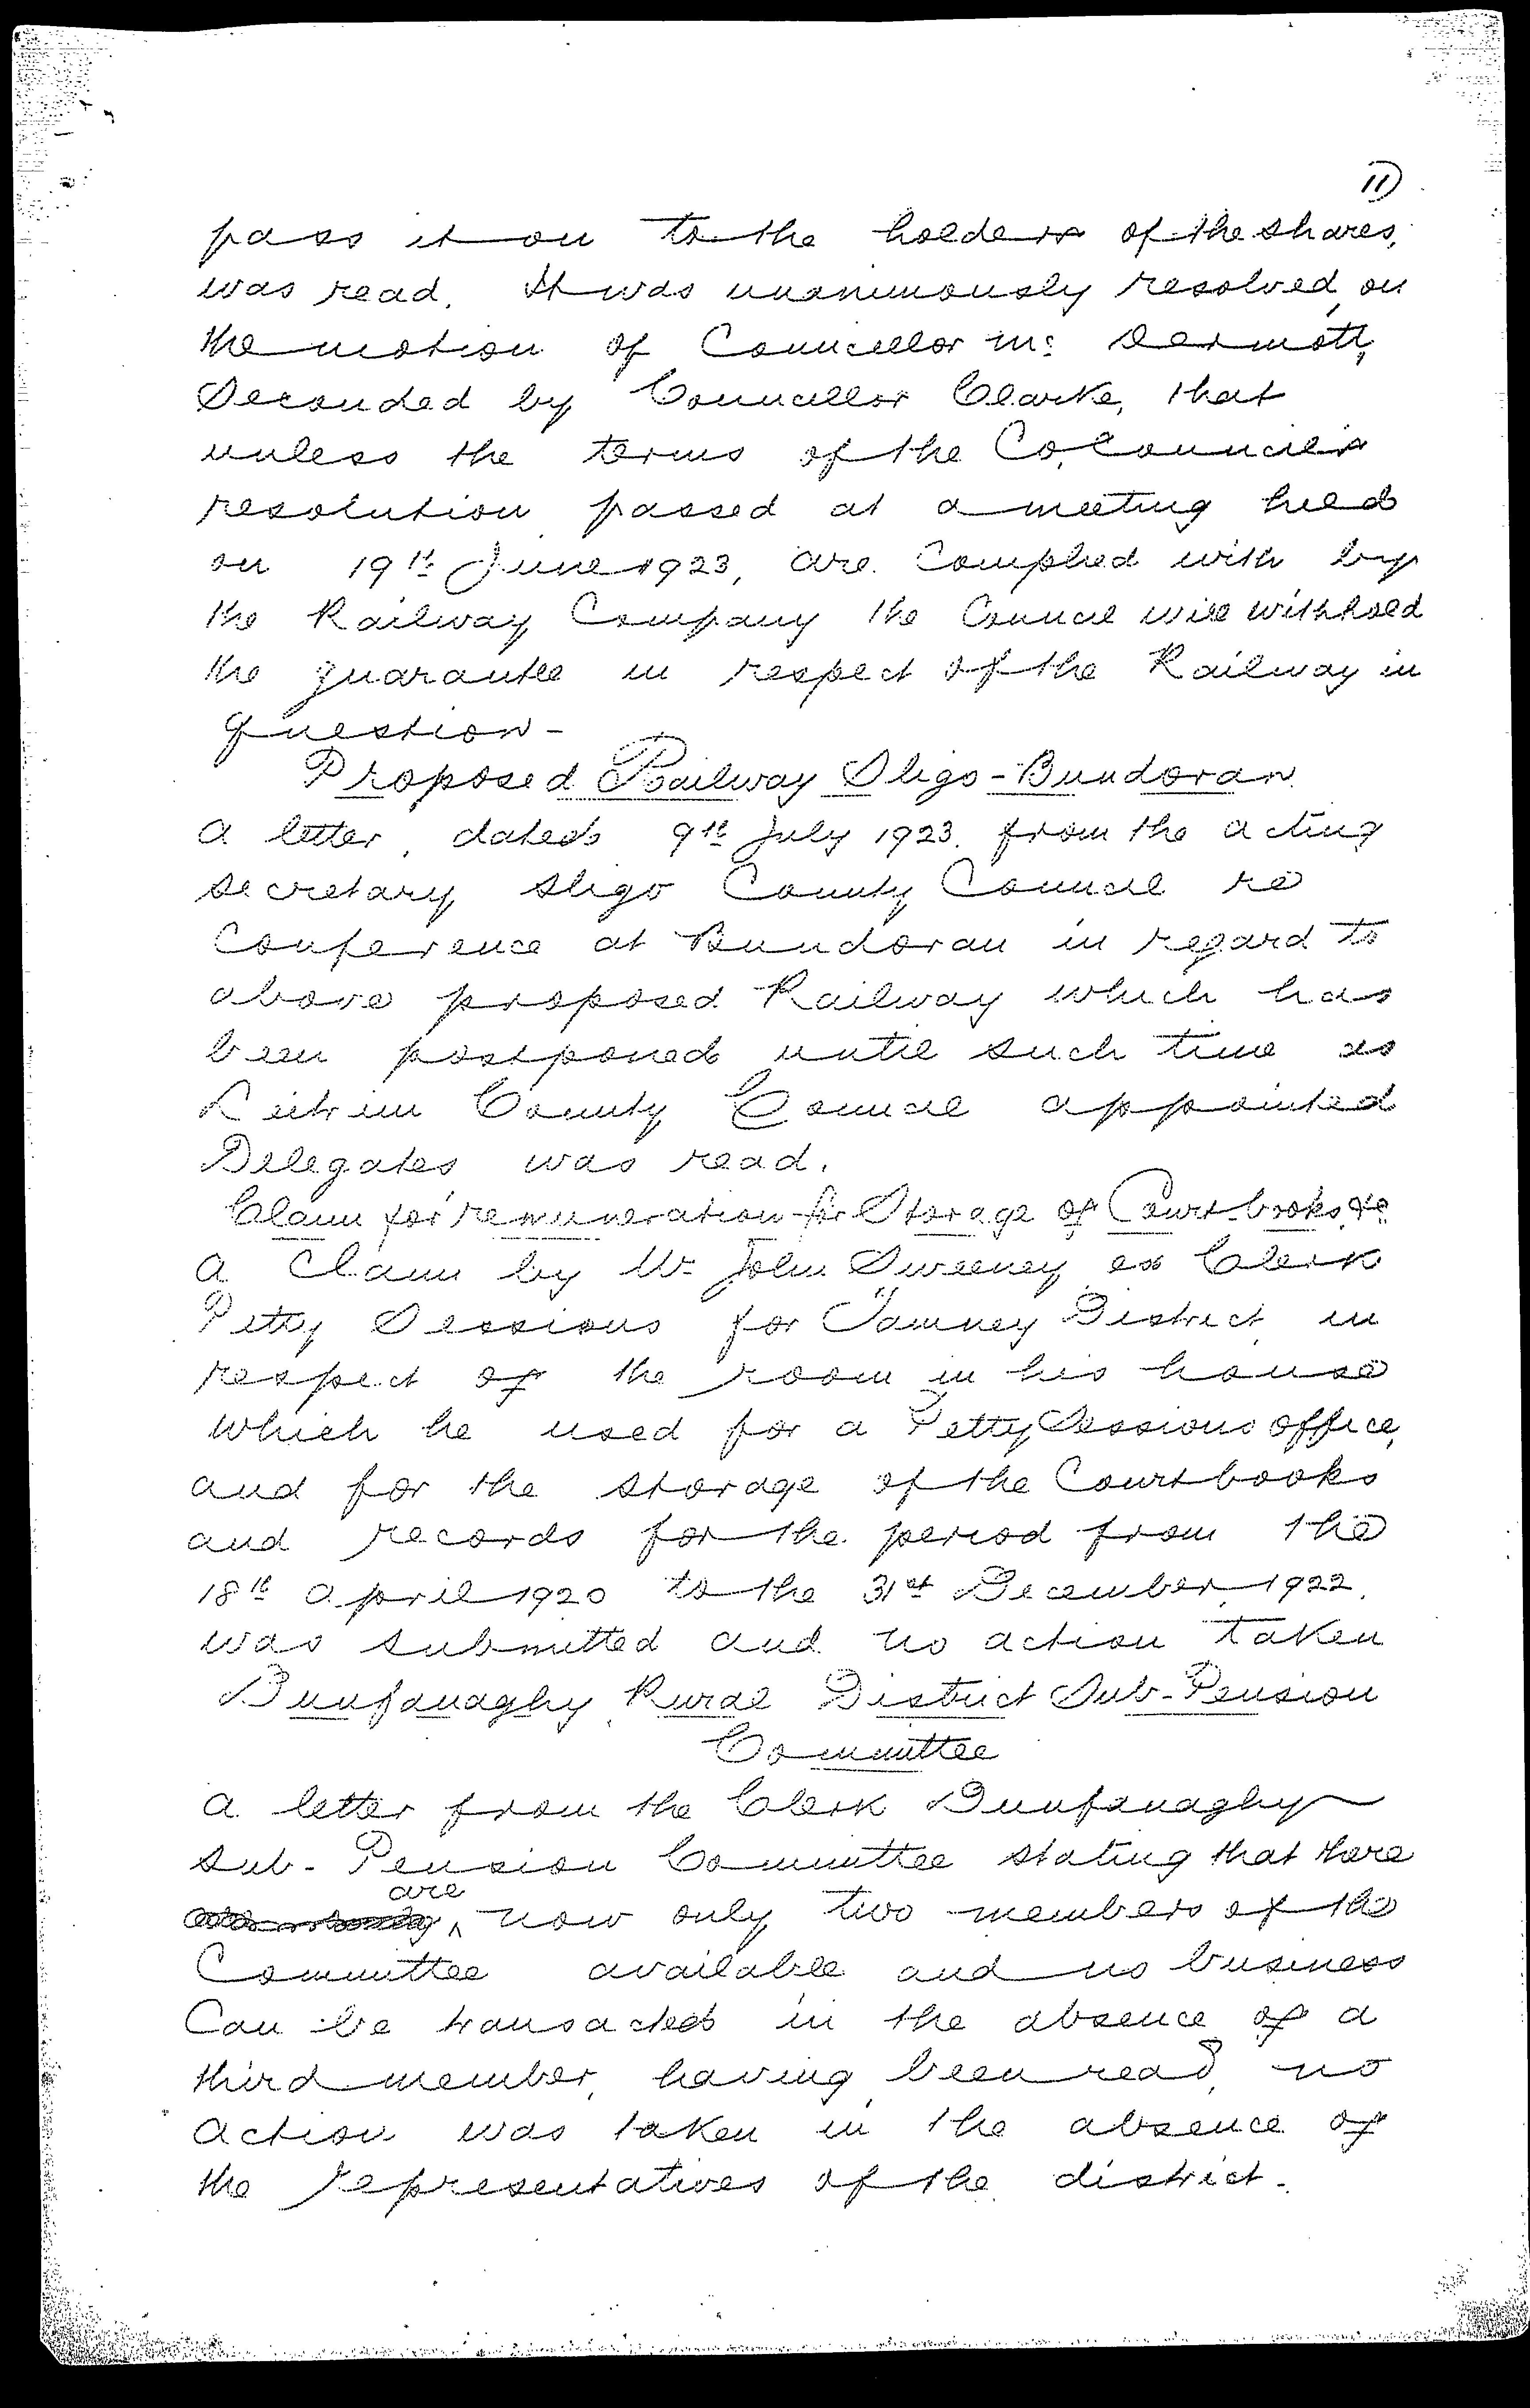 11)
pass it on to the holders of the shares,
was read. It was unanimously resolved, on
the motion of Councillor Mc Dermott,
Seconded by Councillor Clarke, that
unless the terms of the Co. Council's
resolution passed at a meeting held
on 19th June 1923, are complied with by
the Railway Company the Council will withhold
the guarantee in respect of the Railway in
question -
Proposed Railway Sligo - Bundoran
A letter, dated 9th July 1923. from the acting
secretary Sligo County Council re
Conference at Bundoran in regard to
above proposed Railway which has
been postponed until such time as
Leitrim County Council appointed
Delegates was read.
Claim for remuneration for Storage of Court-books &c
A Claim by Mr John Sweeney ex Clerk
Petty Sessions for Tamney District in
respect of the room in his house
which he used for a Petty Sessions office,
and for the storage of the Courtbooks
and records for the period from the
18th April 1920 to the 31st December, 1922.
was submitted and no action taken
Dunfanaghy Rural District Sub-Pension
Committee
A letter from the Clerk Dunfanaghy
Sub-Pension Committee stating that there
are
now only two members of the
Committee available and no business
Can be transacted in the absence of a
third member, having been read, no
action was taken in the absence of
the representatives of the district.